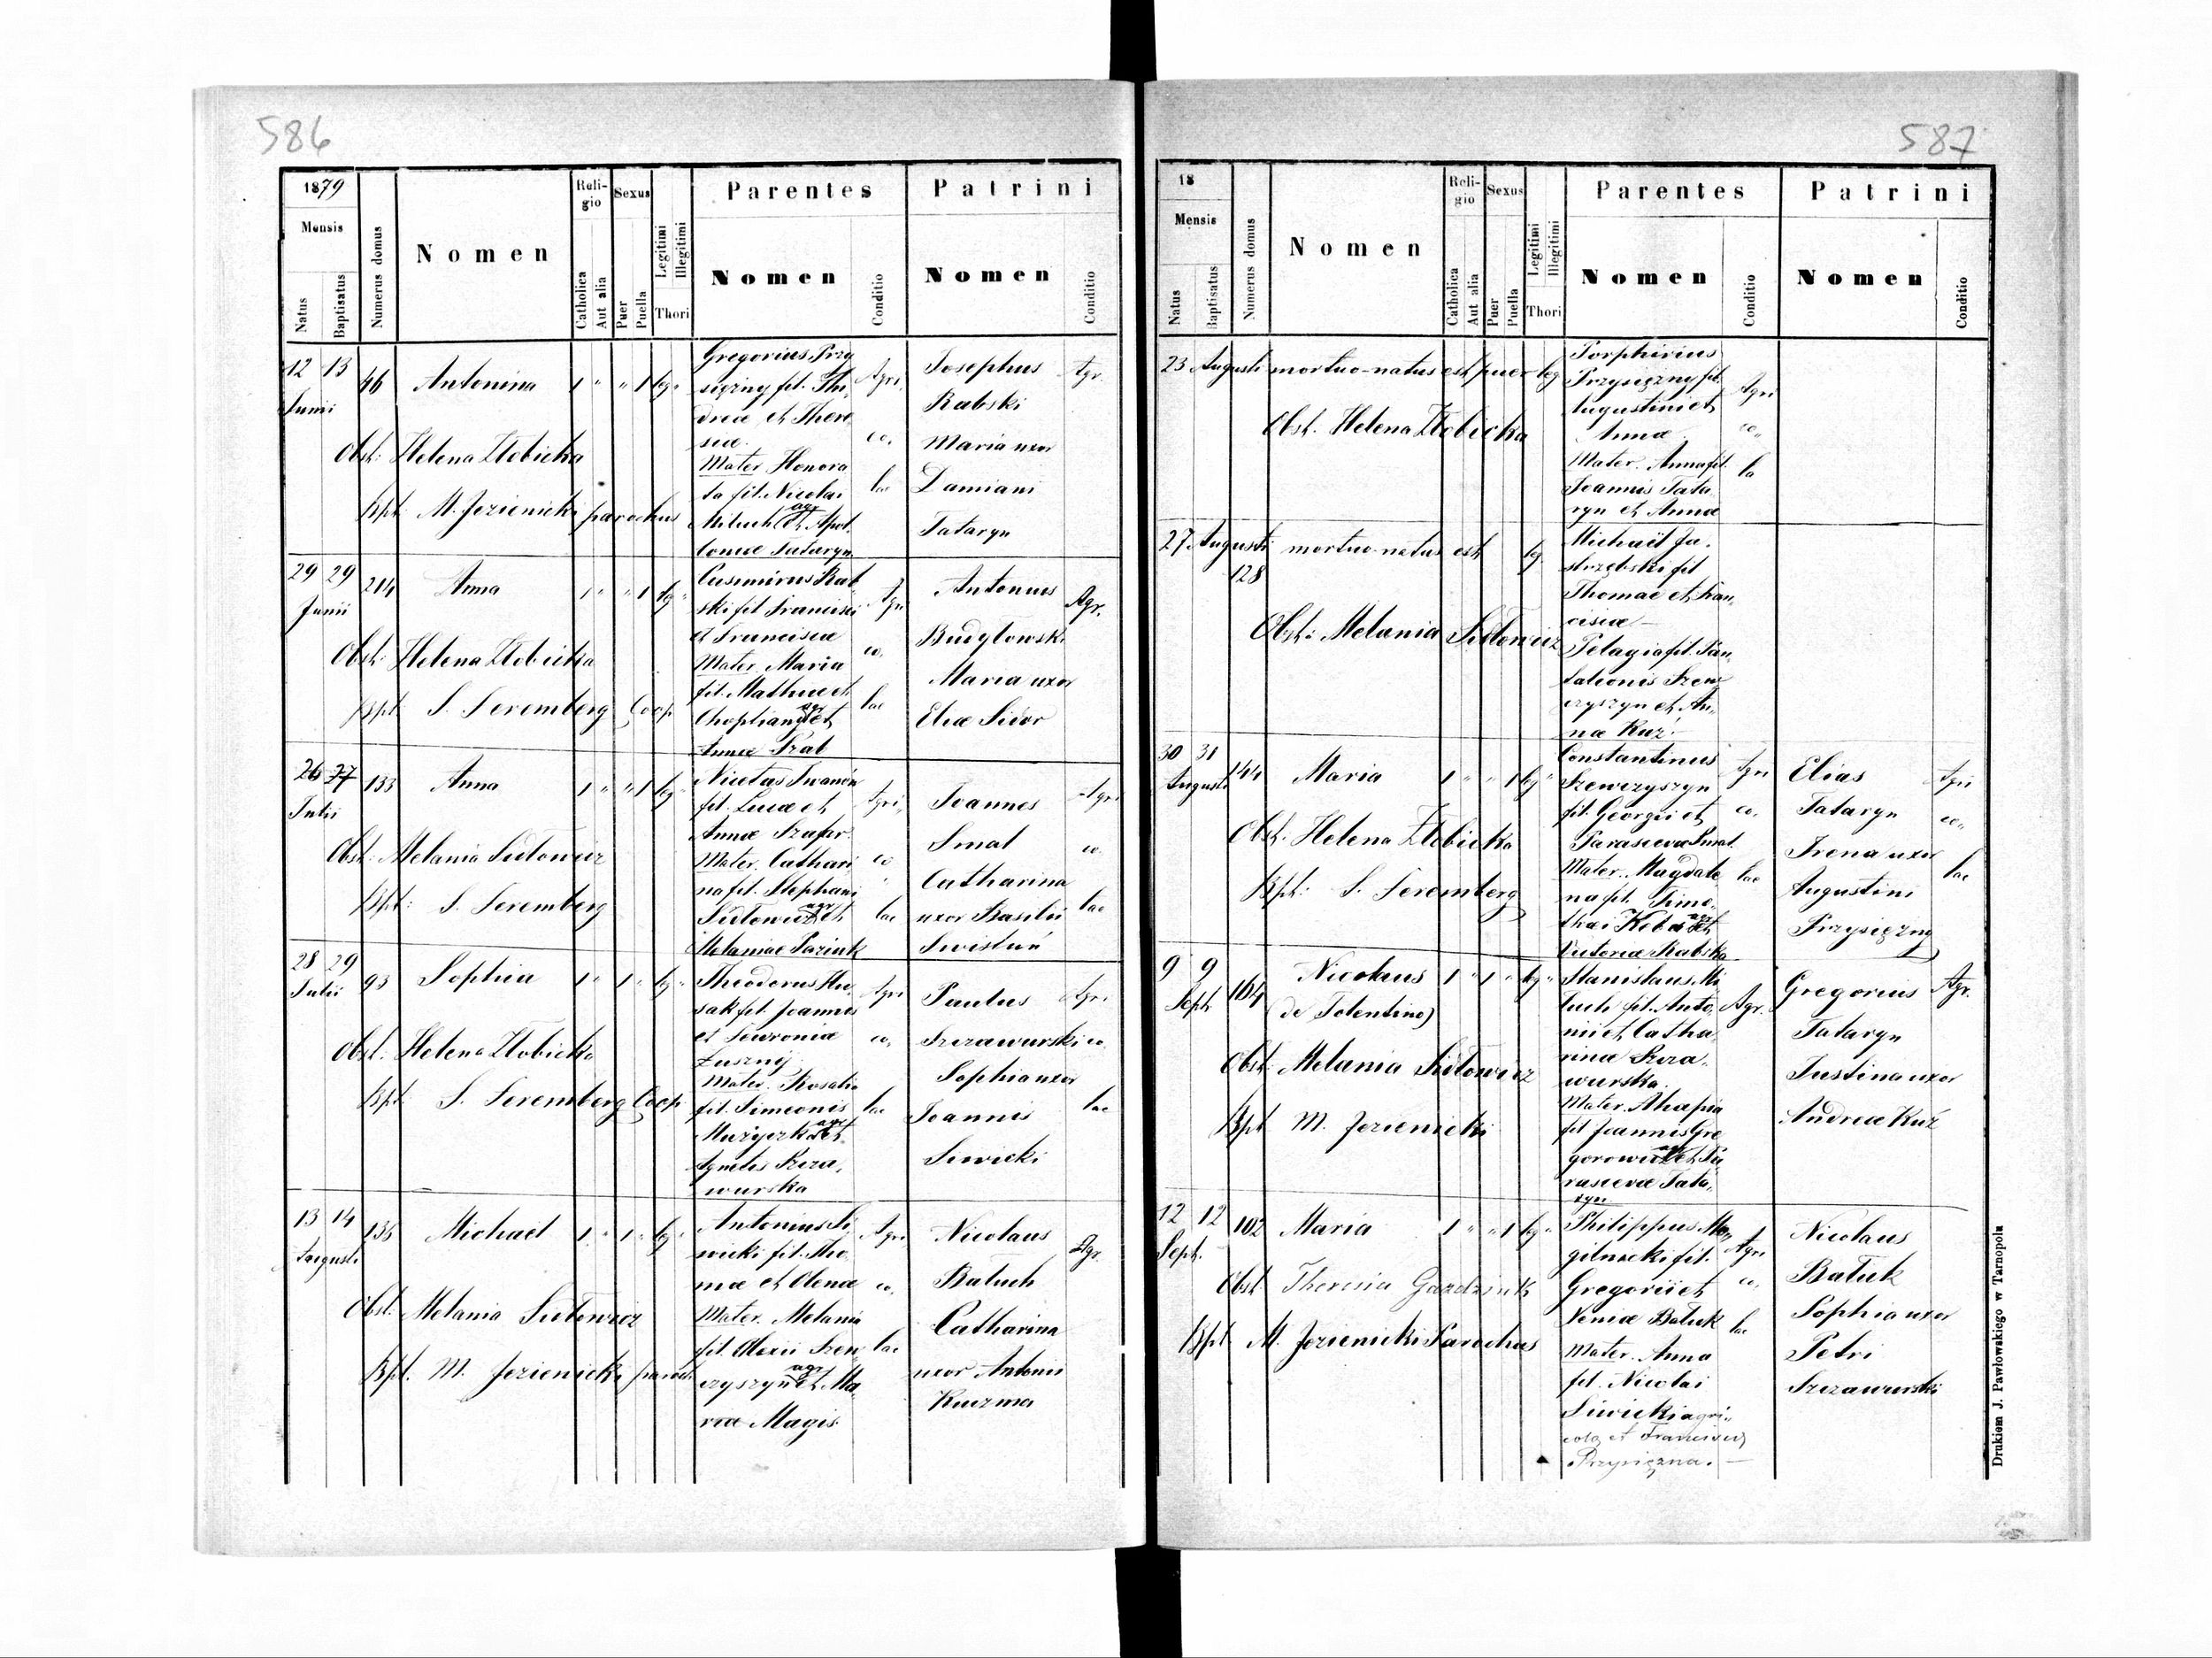 586
1879
Mensis
Natus
Baptisatus
Numerus domus
Nomen
Reli-
gio
Catholica
Aut alia
Sexus
Puer
Puella
Legitimi
Illegitimi
Thori
Parentes
Nomen
Conditio
Patrini
Nomen
Conditio
12 13 46 Antonina 1 " " 1 leg "
Junii
Obst: Helena Złobicka
Bpt. M. Jezienicki parochus
Gregorius Przy
sięzny fil. Th
dreæ et There
siæ.
Mater Honora
ta fil. Nicolai
Miluch agr et Apol
loniæ Tataryn
Agri,
co,
lae
Josephus
Rabski
Maria uxor
Damiani
Tataryn
Agr.
29 29 214 Anna 1 " " 1 leg "
Junii
Obst: Helena Złobicka
Bpt. S. Seremberg Coop
Casimirus Rab
ski fil Francisci
et Franciscæ
Mater Maria
fil. Mathiæ et
agr et
Annæ Szab
Agri
co,
lae
Antonius
Budylowski
Maria uxor
Eliæ Sidor
Agr.
26 27 133 Anna 1 " " 1 leg "
Julii
Obst: Melania Sidłowicz
Bpt: S. Seremberg
Nicetas Iwanón
fil. Lucæ et
Annæ Szafr
Mater. Cathari
na fil. Stephani
Sidłowicz agr et
Melaniae Paziuk
Agri,
co
lae
Joannes
Smal
Catharina
uxor Basilii
Swistuń
Agri
co
lae
28 29 93 Sophia 1 " 1 " leg "
Julii
Obst. Helena Złobicka
Bpt. S. Seremberg Coop
Theodorus Hu
sak fil. Joannes
et Fewroniæ
Zuszny
Mater. Rosalia
fil. Simeonis
Muzyczka agr et
Agnetis Szcza,
wurska
Agri
co,
lae
Paulus
Szczawurski
Sophia uxor
Joannis
Siwicki
Agri
co
lae
13 14 135 Michael 1 " 1 " leg "
Augusti
Obst: Melania Sidłowicz
Bpt. M. Jezienicki paroch
Antonius Si
wicki fil. Tho
mæ et Olenæ
Mater. Melania
fil. Alexii Szew
czyszyn agr et Ma,
riæ Magis
Agri
co,
lae
Nicolaus
Baluch
Catharina
uxor Antonii
Kuczma
Agr.
587
18
Mensis
Natus
Baptisatus
Numerus domus
Nomen
Reli-
gio
Catholica
Aut alia
Sexus
Puer
Puella
Legitimi
Illegitimi
Thori
Parentes
Nomen
Conditio
Patrini
Nomen
Conditio
23 Augusti mortuo-natus est puer leg
Obst. Helena Złobicka
Porphirius
Przysięzny fil.
Augustini et
Annæ.
Mater. Anna fil.
Joannis Tata
ryn et Annæ
Agri
co,,
la
27 Augusti mortuo-natus est leg.
128
Obst: Melania Sidłowicz
Michaël Ja,
strzębski fil
Thomae et Fran,
ciscæ —
Pelagia fil. Pan,
taleonis Szew
czyszyn et An,
næ Kuź.
30 31 144 Maria 1 " " 1 leg "
Augusti
Obst: Helena Złobicka
Bpt: S. Seremberg
Constantinus
Szewczyszyn
fil. Georgii et
Parascevæ Smal
Mater. Magdale
na fil. Timo,
thæi agr et
Victoriæ Rabska
Agri
co,
lae
Elias
Tataryn
Irena uxor
Augustini
Przysięzny
Agri
co,,
lae
9 9 164 Nicolaus 1 " 1 " leg "
Sept
(de Tolentino)
Obst: Melania Sidłowicz
Bpt M. Jezienicki
Stanislaus Mi
luch fil. Anto,
nii et Catha,
rinæ Szcza,
wurska.
Mater. Ahapia
fil Joannis Gre
gorowicz et Pa
rascevæ Tata,
ryn
Agr.
Gregorius
Tataryn
Justina uxor
Andreæ Kuź
Agr.
12 12 102 Maria 1 " " 1 leg "
Sept.
Obst. Theresia Gozdziuk
Bpt M. Jezienicki Parochus
Philippus Mo,
gilnicki fil.
Gregorii et
Xeniæ Batuk
Mater. Anna
fil. Nicolai
Siwicki agri,,
colæ et Franciscæ
Przysięzna. —
Agri
co,
lae
Nicolaus
Batuk
Sophia uxor
Petri
Szczawurski
Drukiem J. Pawłowskiego w Tarnopolu